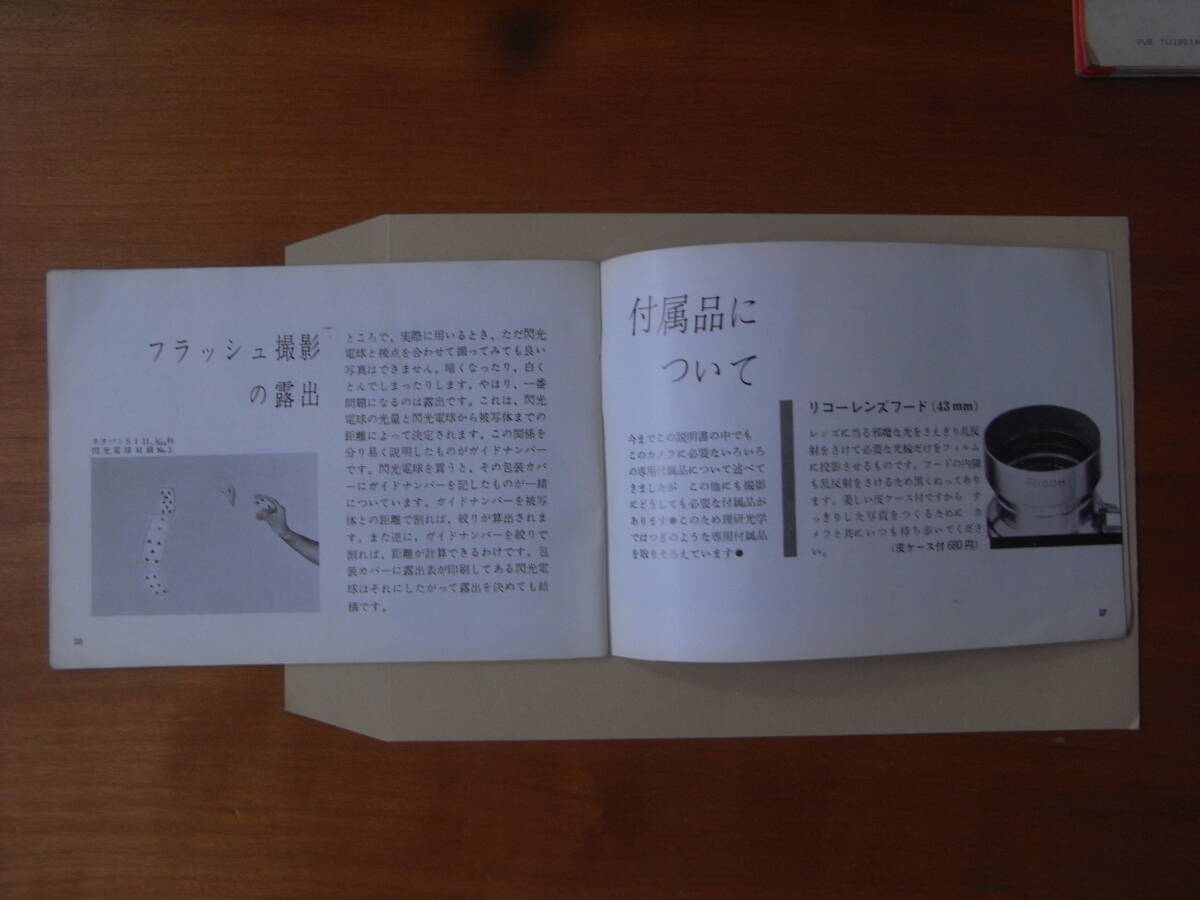 フラッシュ撮影
の露出
ネオパンSS
閃光電球M級 No.3
ところで、実際に用いるとき、ただ閃光
電球と接点を合わせて撮ってみても良い
写真はできません。暗くなったり、白く
とんでしまったりします。やはり、一番
問題になるのは露出です。これは、閃光
電球の光量と閃光電球から被写体までの
距離によって決定されます。この関係を
分り易く説明したものがガイドナンバー
です。閃光電球を買うと、その包装カバ
ーにガイドナンバーを記したものが一緒
についています。ガイドナンバーを被写
体との距離で割れば、絞りが算出されま
す。また逆に、ガイドナンバーを絞りで
割れば、距離が計算できるわけです。包
装カバーに露出表が印刷してある閃光電
球はそれにしたがって露出を決めても結
構です。
付属品に
ついて
今までこの説明書の中でも
このカメラに必要ないろいろ
の専用付属品について述べて
きましたが この他にも撮影
にどうしても必要な付属品が
あります●このため理研光学
ではつぎのような専用付属品
を取りそろえています●
リコーレンズフード(43mm)
レンズに当る邪魔な光をさえぎり乱反
射をさけて必要な光線だけをフィルム
に投影させるものです。フードの内側
も乱反射をさけるため黒くぬってあり
ます。美しい皮ケース付ですから す
っきりした写真をつくるために カ
メラと共にいつも持ち歩いてくださ
い。
(皮ケース付680円)
RICOH
27